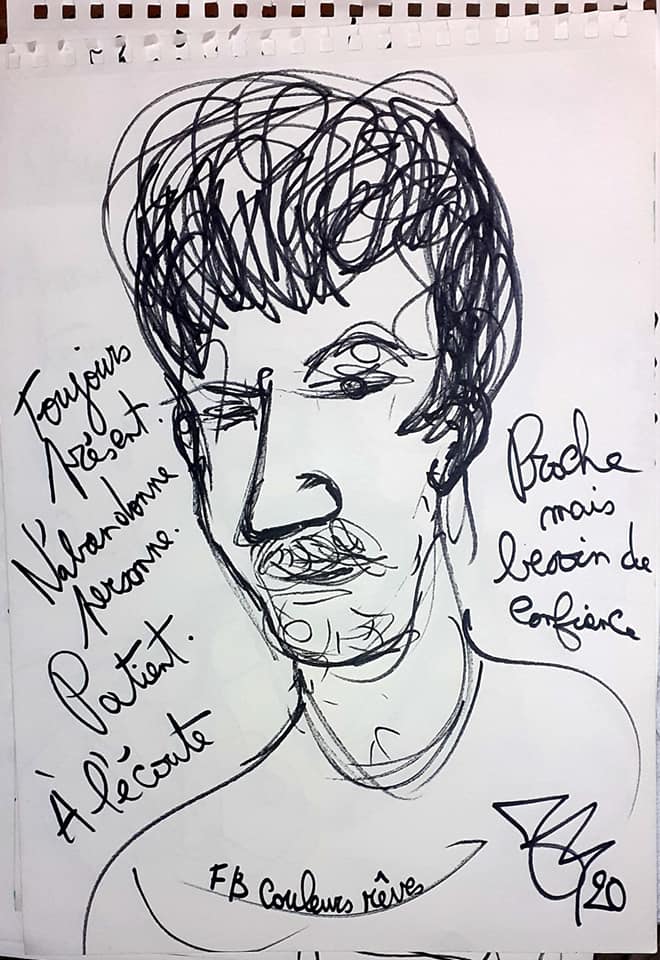 Toujours
présent.
N'abandonne
personne.
Patient.
À l'écoute
Proche
mais
besoin de
confience
FB Couleurs rêves
20